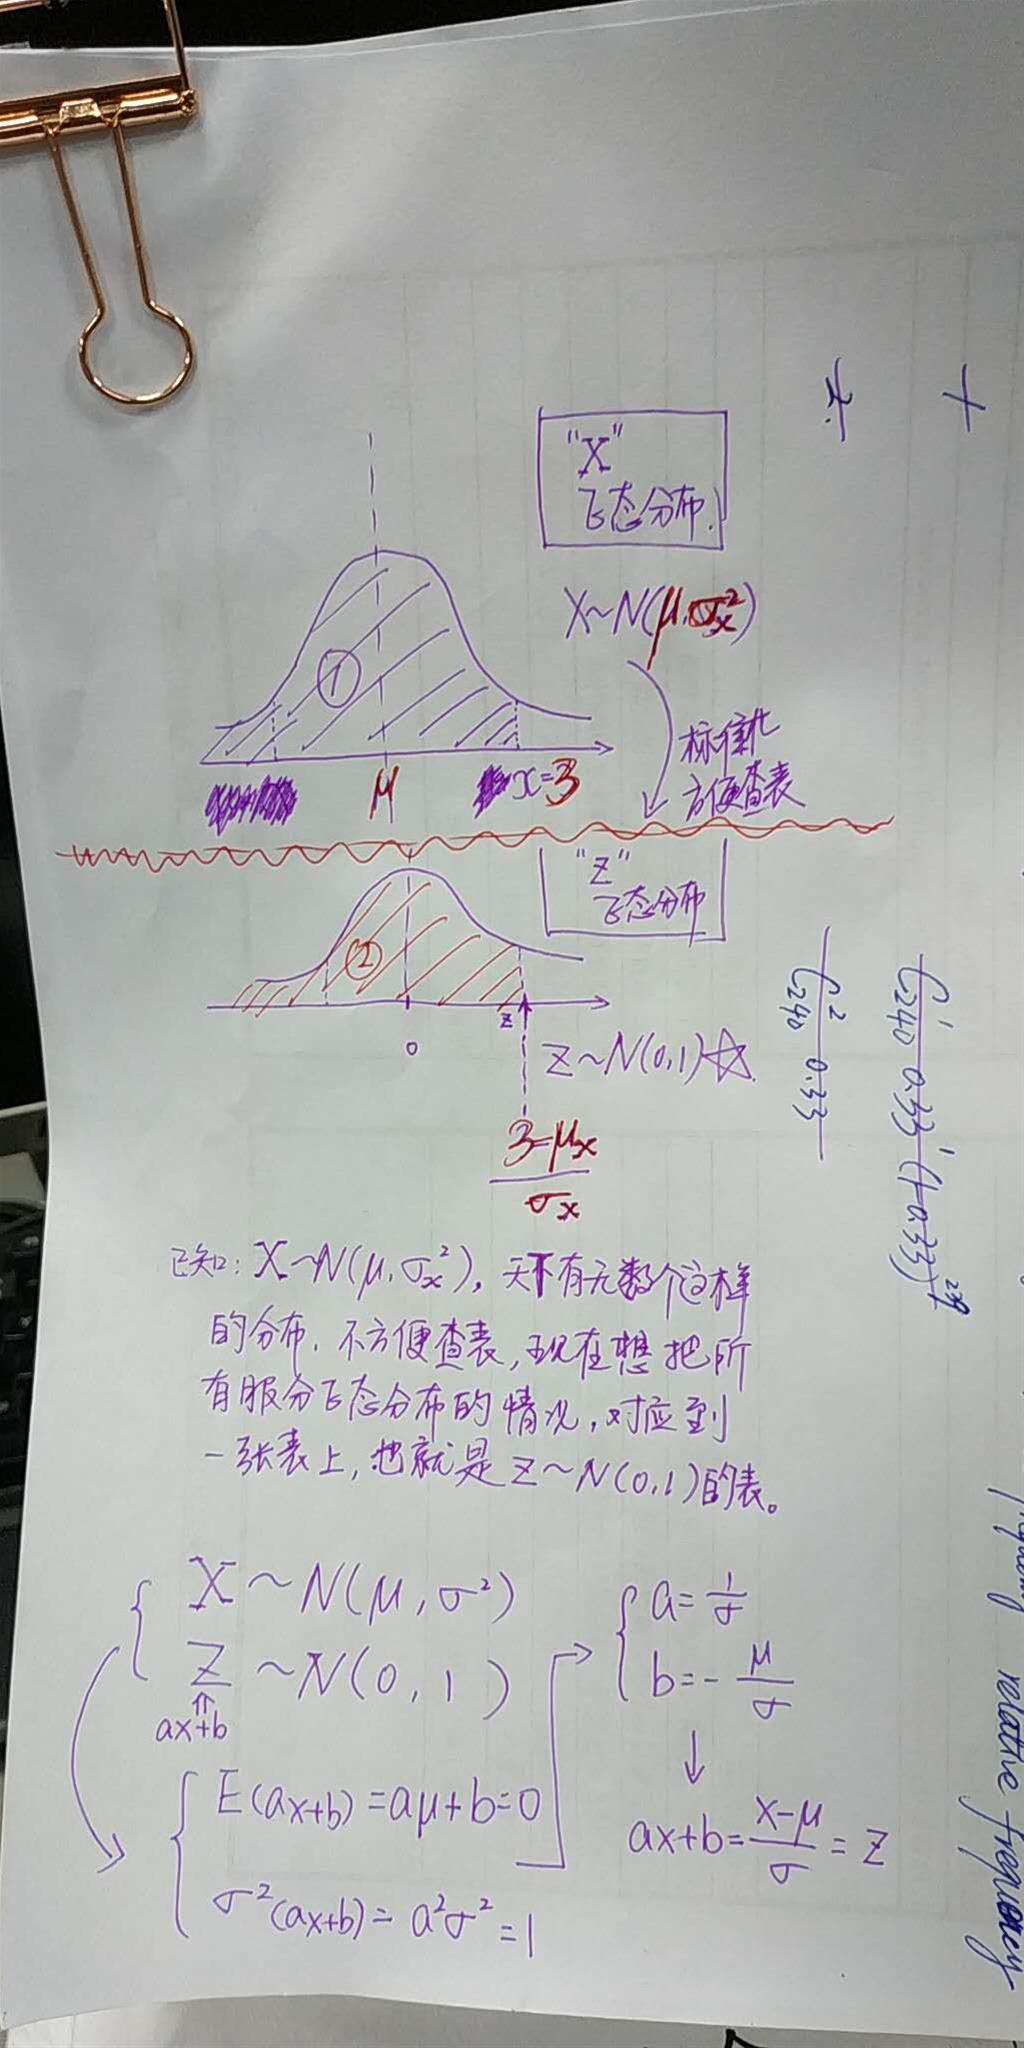 "X"
正态分布.
X~N(μ,σx²)
①
标准化
方便查表
μ
x=3
"Z"
正态分布
②
z
0
Z~N(0,1)☆.
3-μx
σx
已知: X~N(μ,σx²), 天下有无数个这样
的分布, 不方便查表, 现在想把所
有服从正态分布的情况, 对应到
一张表上, 也就是 Z~N(0,1)的表。
X ~ N(μ, σ²)
Z ~ N(0, 1)
ax+b
E(ax+b) = aμ+b=0
σ²(ax+b) = a²σ² = 1
a = 1/σ
b = - μ/σ
ax+b = x-μ/σ = Z
C¹240 0.33¹ (1-0.33)²³⁹
C²240 0.33
relative frequency